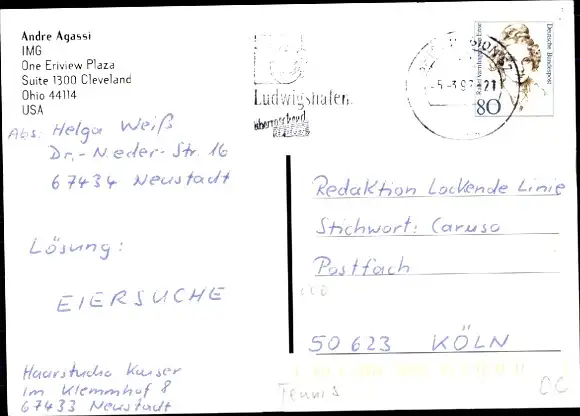 Andre Agassi
IMG
One Eriview Plaza
Suite 1300 Cleveland
Ohio 44114
USA
Abs. Helga Weiß
Dr.-Nieder-Str. 16
67434 Neustadt
Lösung:
EIERSUCHE
Haarstudio Kaiser
Im Klemmhof 8
67433 Neustadt
Ludwigshafen
überraschend
Deutsche Bundespost
80
Redaktion Lockende Linie
Stichwort: Caruso
Postfach
50 623 KÖLN
Tennis
CC